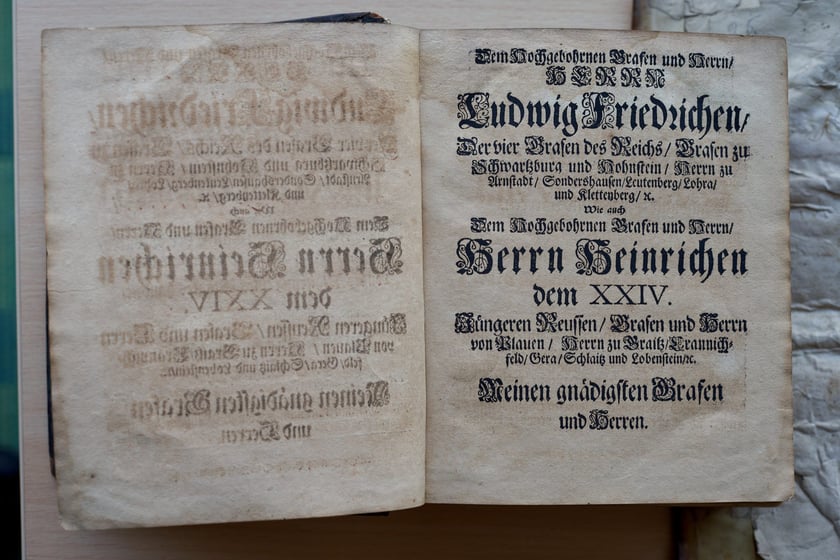 Dem Hochgebohrnen Grafen und Herrn/
HERRN
Ludwig Friedrichen/
Der vier Grafen des Reichs/ Grafen zu
Schwartzburg und Hohnstein/ Herrn zu
Arnstadt/ Sondershausen/Leutenberg/Lohra/
und Klettenberg/ ꝛc.
Wie auch
Dem Hochgebohrnen Grafen und Herrn/
Herrn Heinrichen
dem XXIV.
Jüngeren Reussen/ Grafen und Herrn
von Plauen/ Herrn zu Graitz/Crannich-
feld/Gera/Schlaitz und Lobenstein/ꝛc.
Meinen gnädigsten Grafen
und Herren.